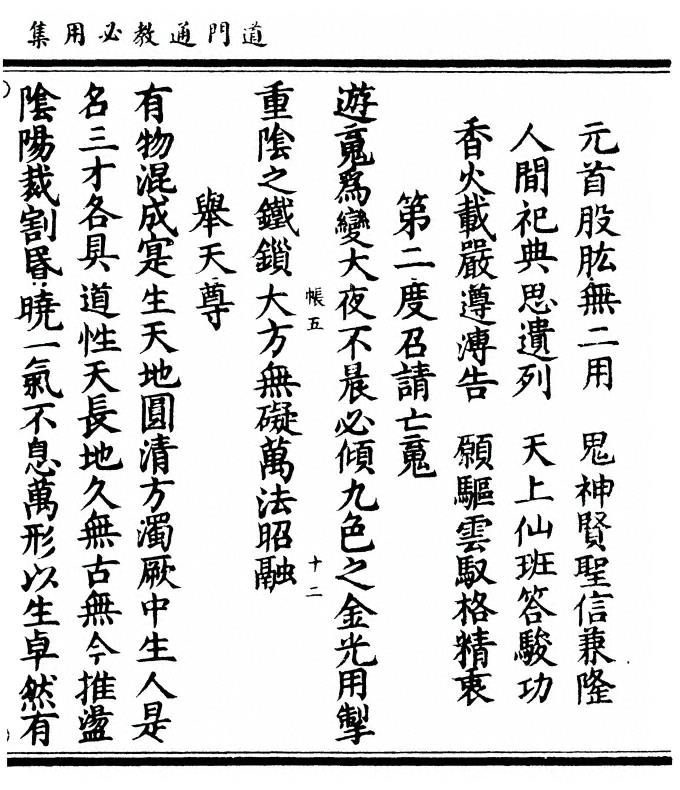 道門通教必用集
元首股肱無二用　鬼神賢聖信兼隆
人間祀典思遺列　天上仙班答駿功
香火載嚴遵溥告　願驅雲馭格精衷
第二度召請亡䰟
遊䰟爲變大夜不晨必傾九色之金光用掣
帳五　十二
重陰之鐵鎖大方無礙萬法昭融
舉天尊
有物混成寔生天地圓清方濁厥中生人是
名三才各具道性天長地久無古無今推盪
陰陽裁割昬曉一氣不息萬形以生卓然有